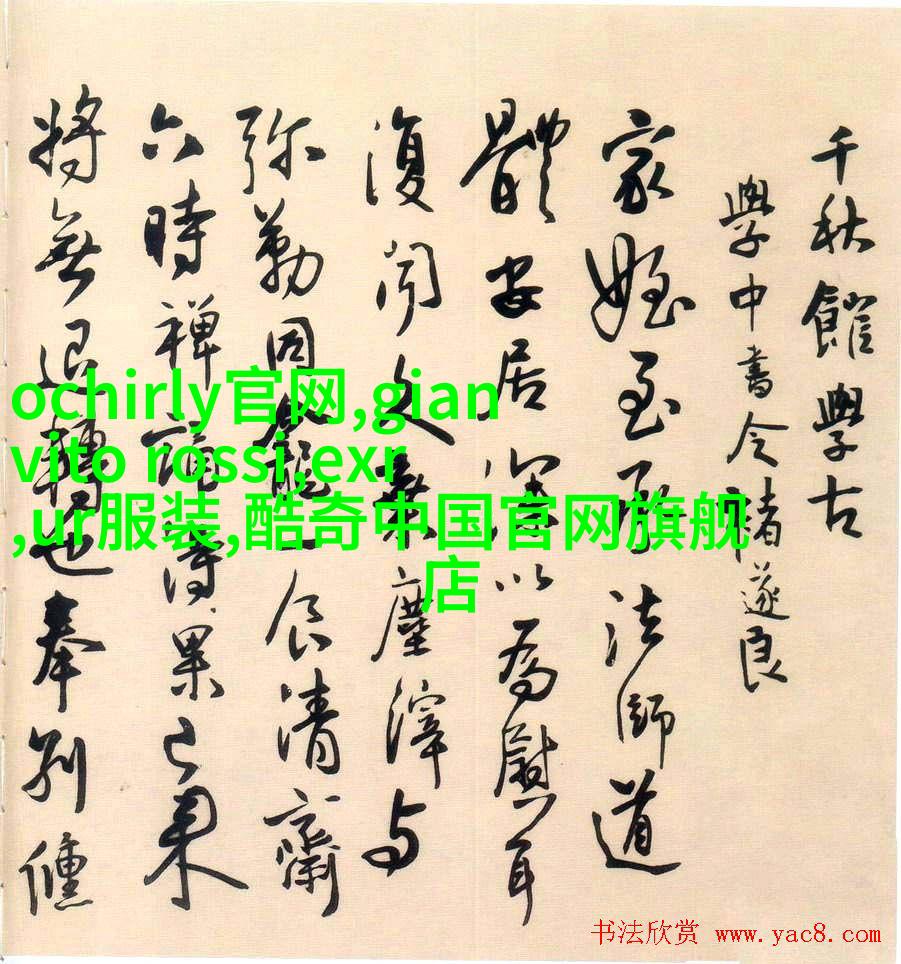 千秋館學古
學中書令褚遂良
家姪至承法師道
體安居深以為慰耳
復聞久棄塵滓与
弥勒同龕一食清齋
六時禅誦得果已来
將無退轉也奉別儵
ochirly官网,gian
vito rossi,exr
,ur服装,酷奇中国官网旗舰
店
书法欣赏 www.yac8.com